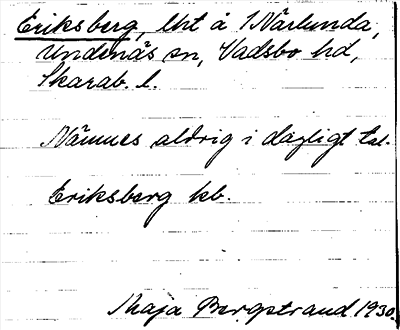 Eriksberg, lht å 1 Närlunda,
Undenäs sn, Vadsbo hd,
Skarab. l.
Nämnes aldrig i dagligt tal.
Eriksberg kb.
Maja Bergstrand 1930.